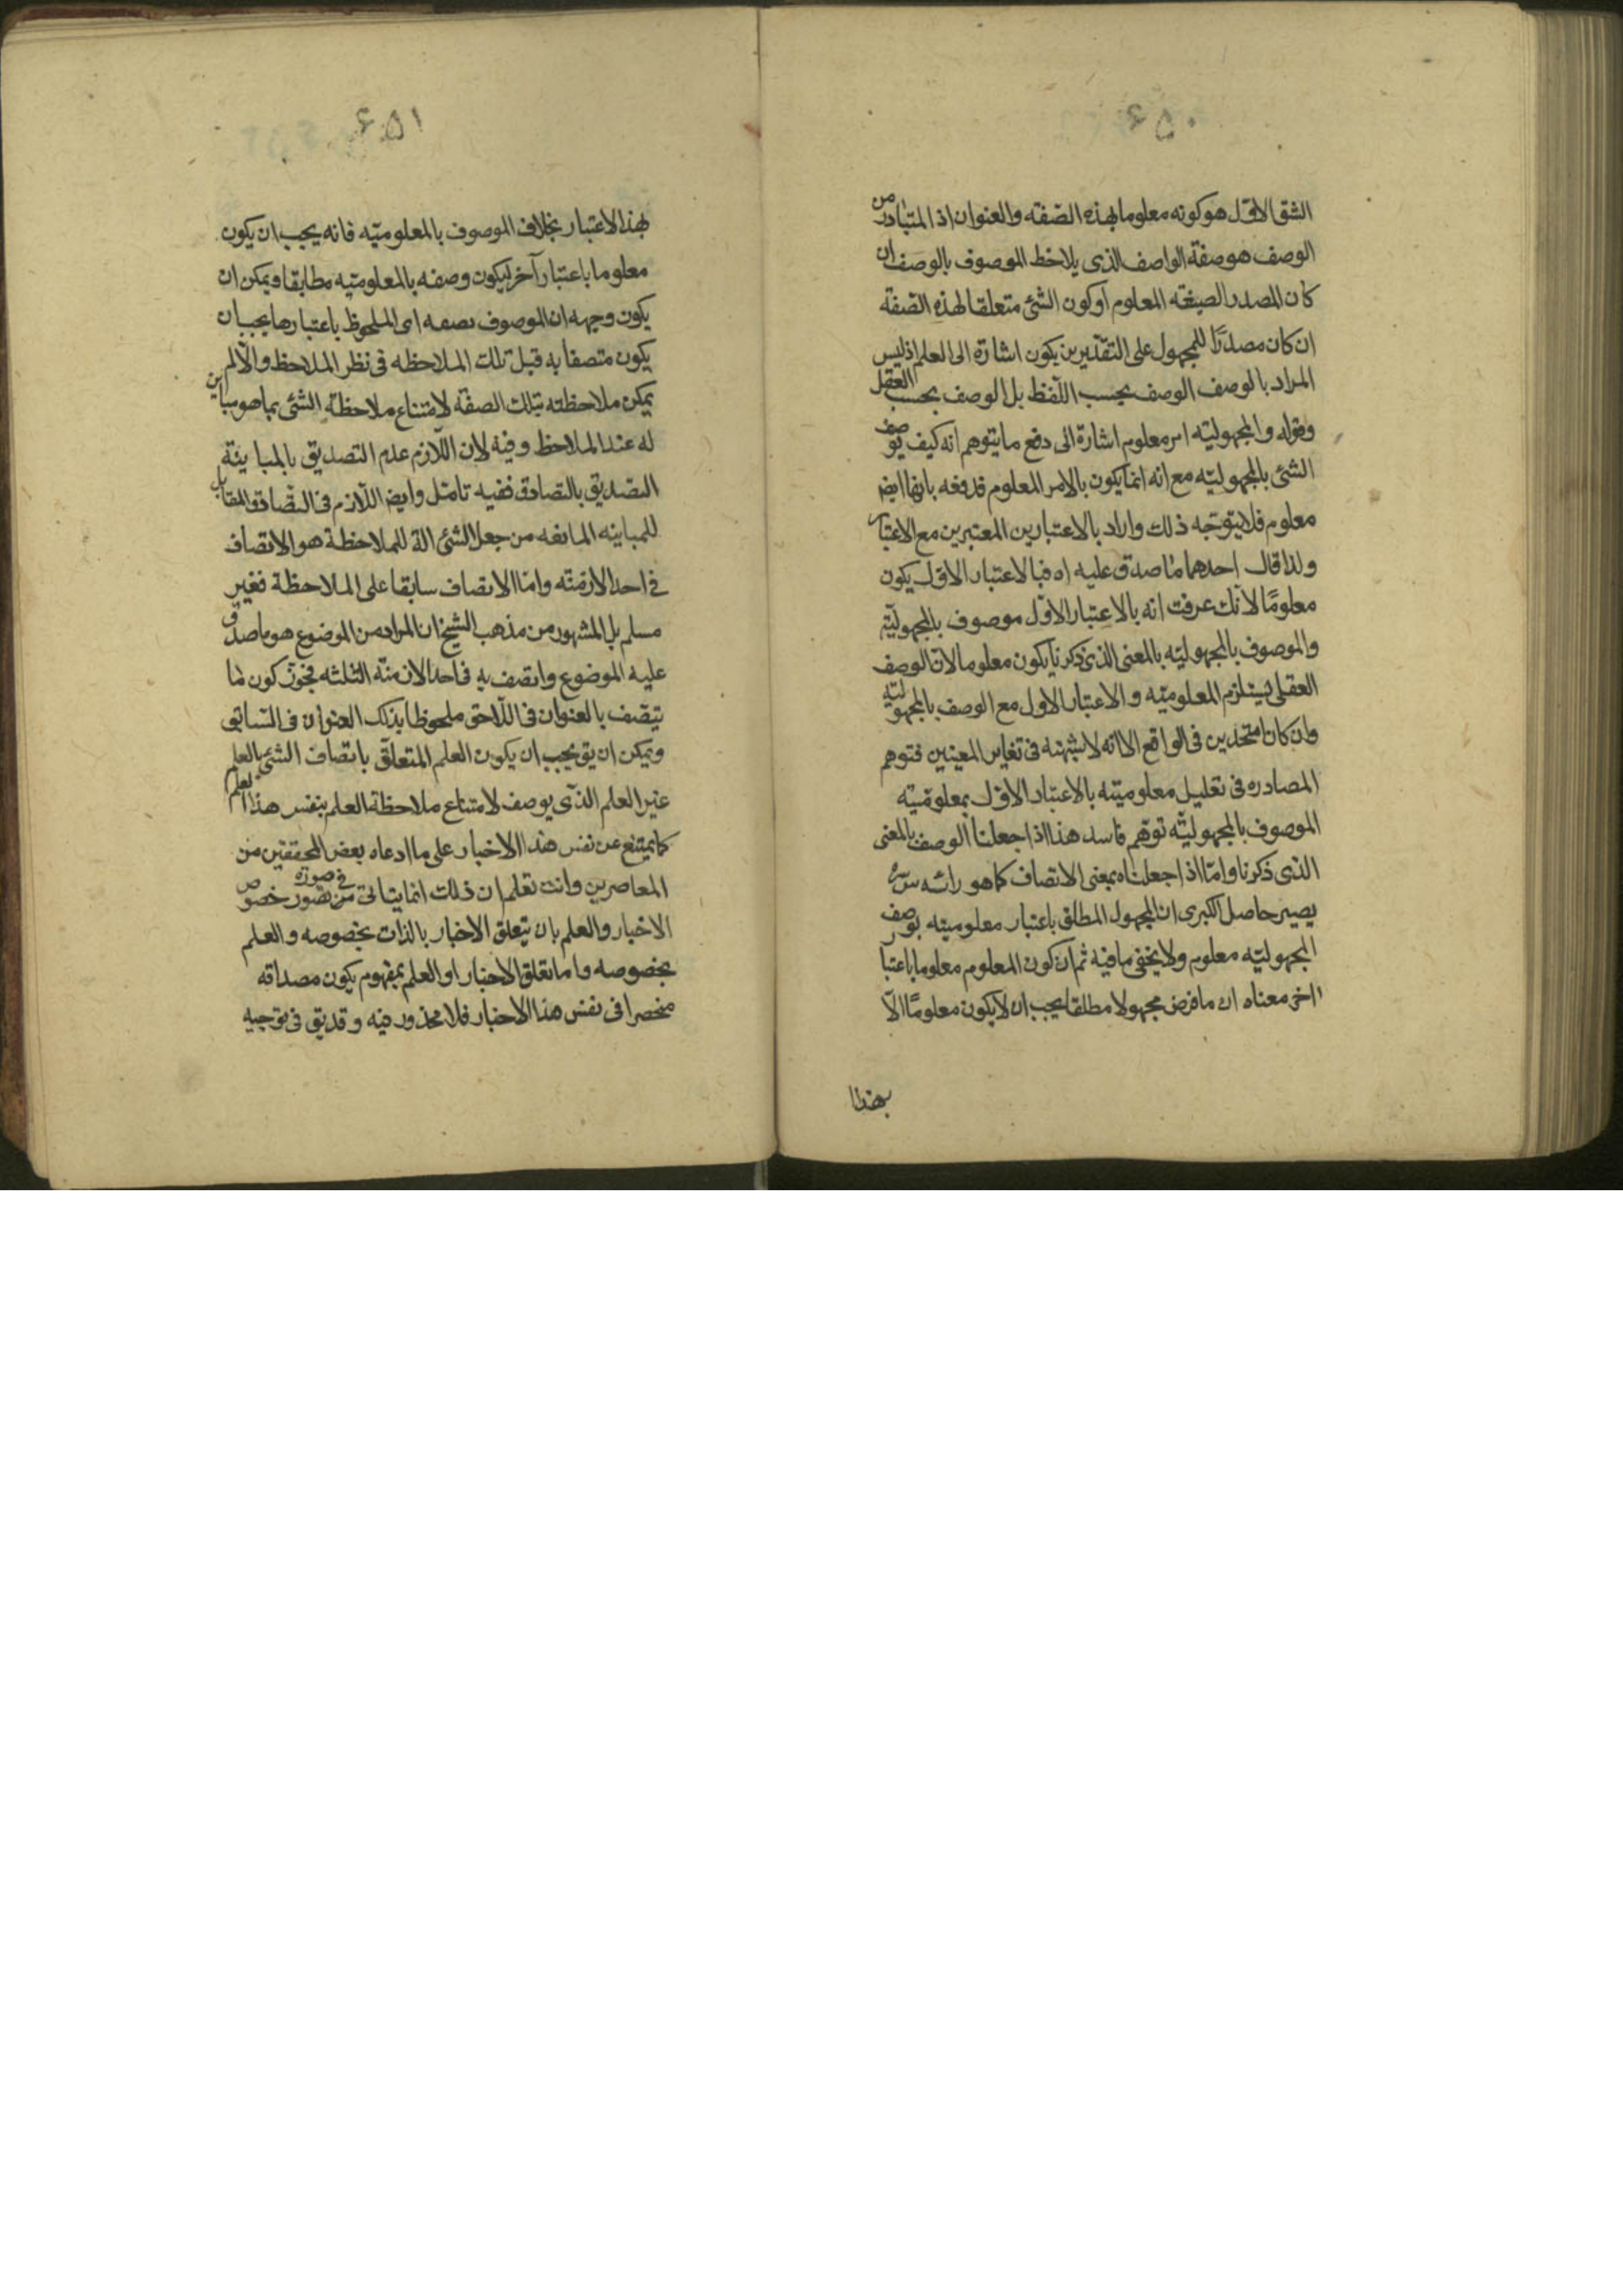 ۶۵۰
الشق الاول هو كونه معلوما بهذه الصفة والعنوان اذ المتبادر من
الوصف هو صفة الواصف الذى يلاحظ الموصوف بالوصف ان
كان المصدر الصيغته المعلوم او كون الشئ متعلقا لهذه الصفة
ان كان مصدرًا للمجهول على التقديرين يكون اشارة الى العلم اذ ليس
المراد بالوصف الوصف بحسب اللفظ بل الوصف بحسب العقل
وقوله والمجهولية امر معلوم اشارة الى دفع ما يتوهم انه كيف يوصف
الشئ بالمجهولية مع انه انما يكون بالامر المعلوم فدفعه بانها ايض
معلوم فلا يتوجه ذلك واراد بالاعتبارين المعتبرين مع الاعتبار
ولذا قال احدهما ما صدق عليه اه فبالاعتبار الاول يكون
معلومًا لانك عرفت انه بالاعتبار الاول موصوف بالمجهولية
والموصوف بالمجهولية بالمعنى الذى ذكرنا يكون معلوما لان الوصف
العقلى يستلزم المعلومية والاعتبار الاول مع الوصف بالمجهولية
وان كان متحدين فى الواقع الا انه لا شبهة فى تغاير المعنيين فتوهم
المصادره فى تعليل معلوميته بالاعتبار الاول بمعلومية
الموصوف بالمجهولية توهم فاسد هذا اذا جعلنا الوصف بالمعنى
الذى ذكرنا وامّا اذا جعلناه بمعنى الاتصاف كما هو رائه س سره
يصير حاصل الكبرى ان المجهول المطلق باعتبار معلوميته بوصف
المجهولية معلوم ولا يخفى ما فيه ثم ان كون المعلوم معلوما باعتبار
اخر معناه ان ما فرض مجهولا مطلقا يجب ان لا يكون معلومًا الا
بهذا
۶۵۱
بهذا الاعتبار بخلاف الموصوف بالمعلومية فانه يجب ان يكون
معلوما باعتبار آخر ليكون وصفه بالمعلومية مطابقا ويمكن ان
يكون وجهه ان الموصوف بصفه اى الملحوظ باعتبارها يجب ان
يكون متصفا به قبل تلك الملاحظه فى نظر الملاحظ والا لم
يمكن ملاحظته بتلك الصفة لامتناع ملاحظة الشئ بما هو مباين
له عند الملاحظ وفيه لان اللازم عدم التصديق بالمباينة
التصديق بالتصادق ففيه تامّل وايض اللازم فى التصادق المقابل
للمباينه المانعه من جعل الشئ الة للملاحظة هو الاتصاف
فى احد الازمنته وامّا الاتصاف سابقا على الملاحظة فغير
مسلم بل المشهور من مذهب الشيخ ان المراد من الموضوع هو ما صدق
عليه الموضوع واتصف به فى احد الازمنته الثلثه فيجوز كون ما
يتصف بالعنوان فى اللاحق ملحوظا بذلك العنوان فى السابق
ويمكن ان يق يجب ان يكون العلم المتعلق باتصاف الشئ بالعلم
غير العلم الذى يوصف لامتناع ملاحظة العلم بنفس هذا العلم
كما يمتنع عن نفس هذا الاخبار على ما ادعاه بعض المحققين من
المعاصرين وانت تعلم ان ذلك انما يتاتى فى صورة تصور خصوص
الاخبار والعلم بان يتعلق الاخبار بالذات بخصوصه والعلم
بخصوصه واما تعلق الاخبار او العلم بمفهوم يكون مصداقه
منحصرا فى نفس هذا الاخبار فلا محذور فيه وقد يق فى توجيه